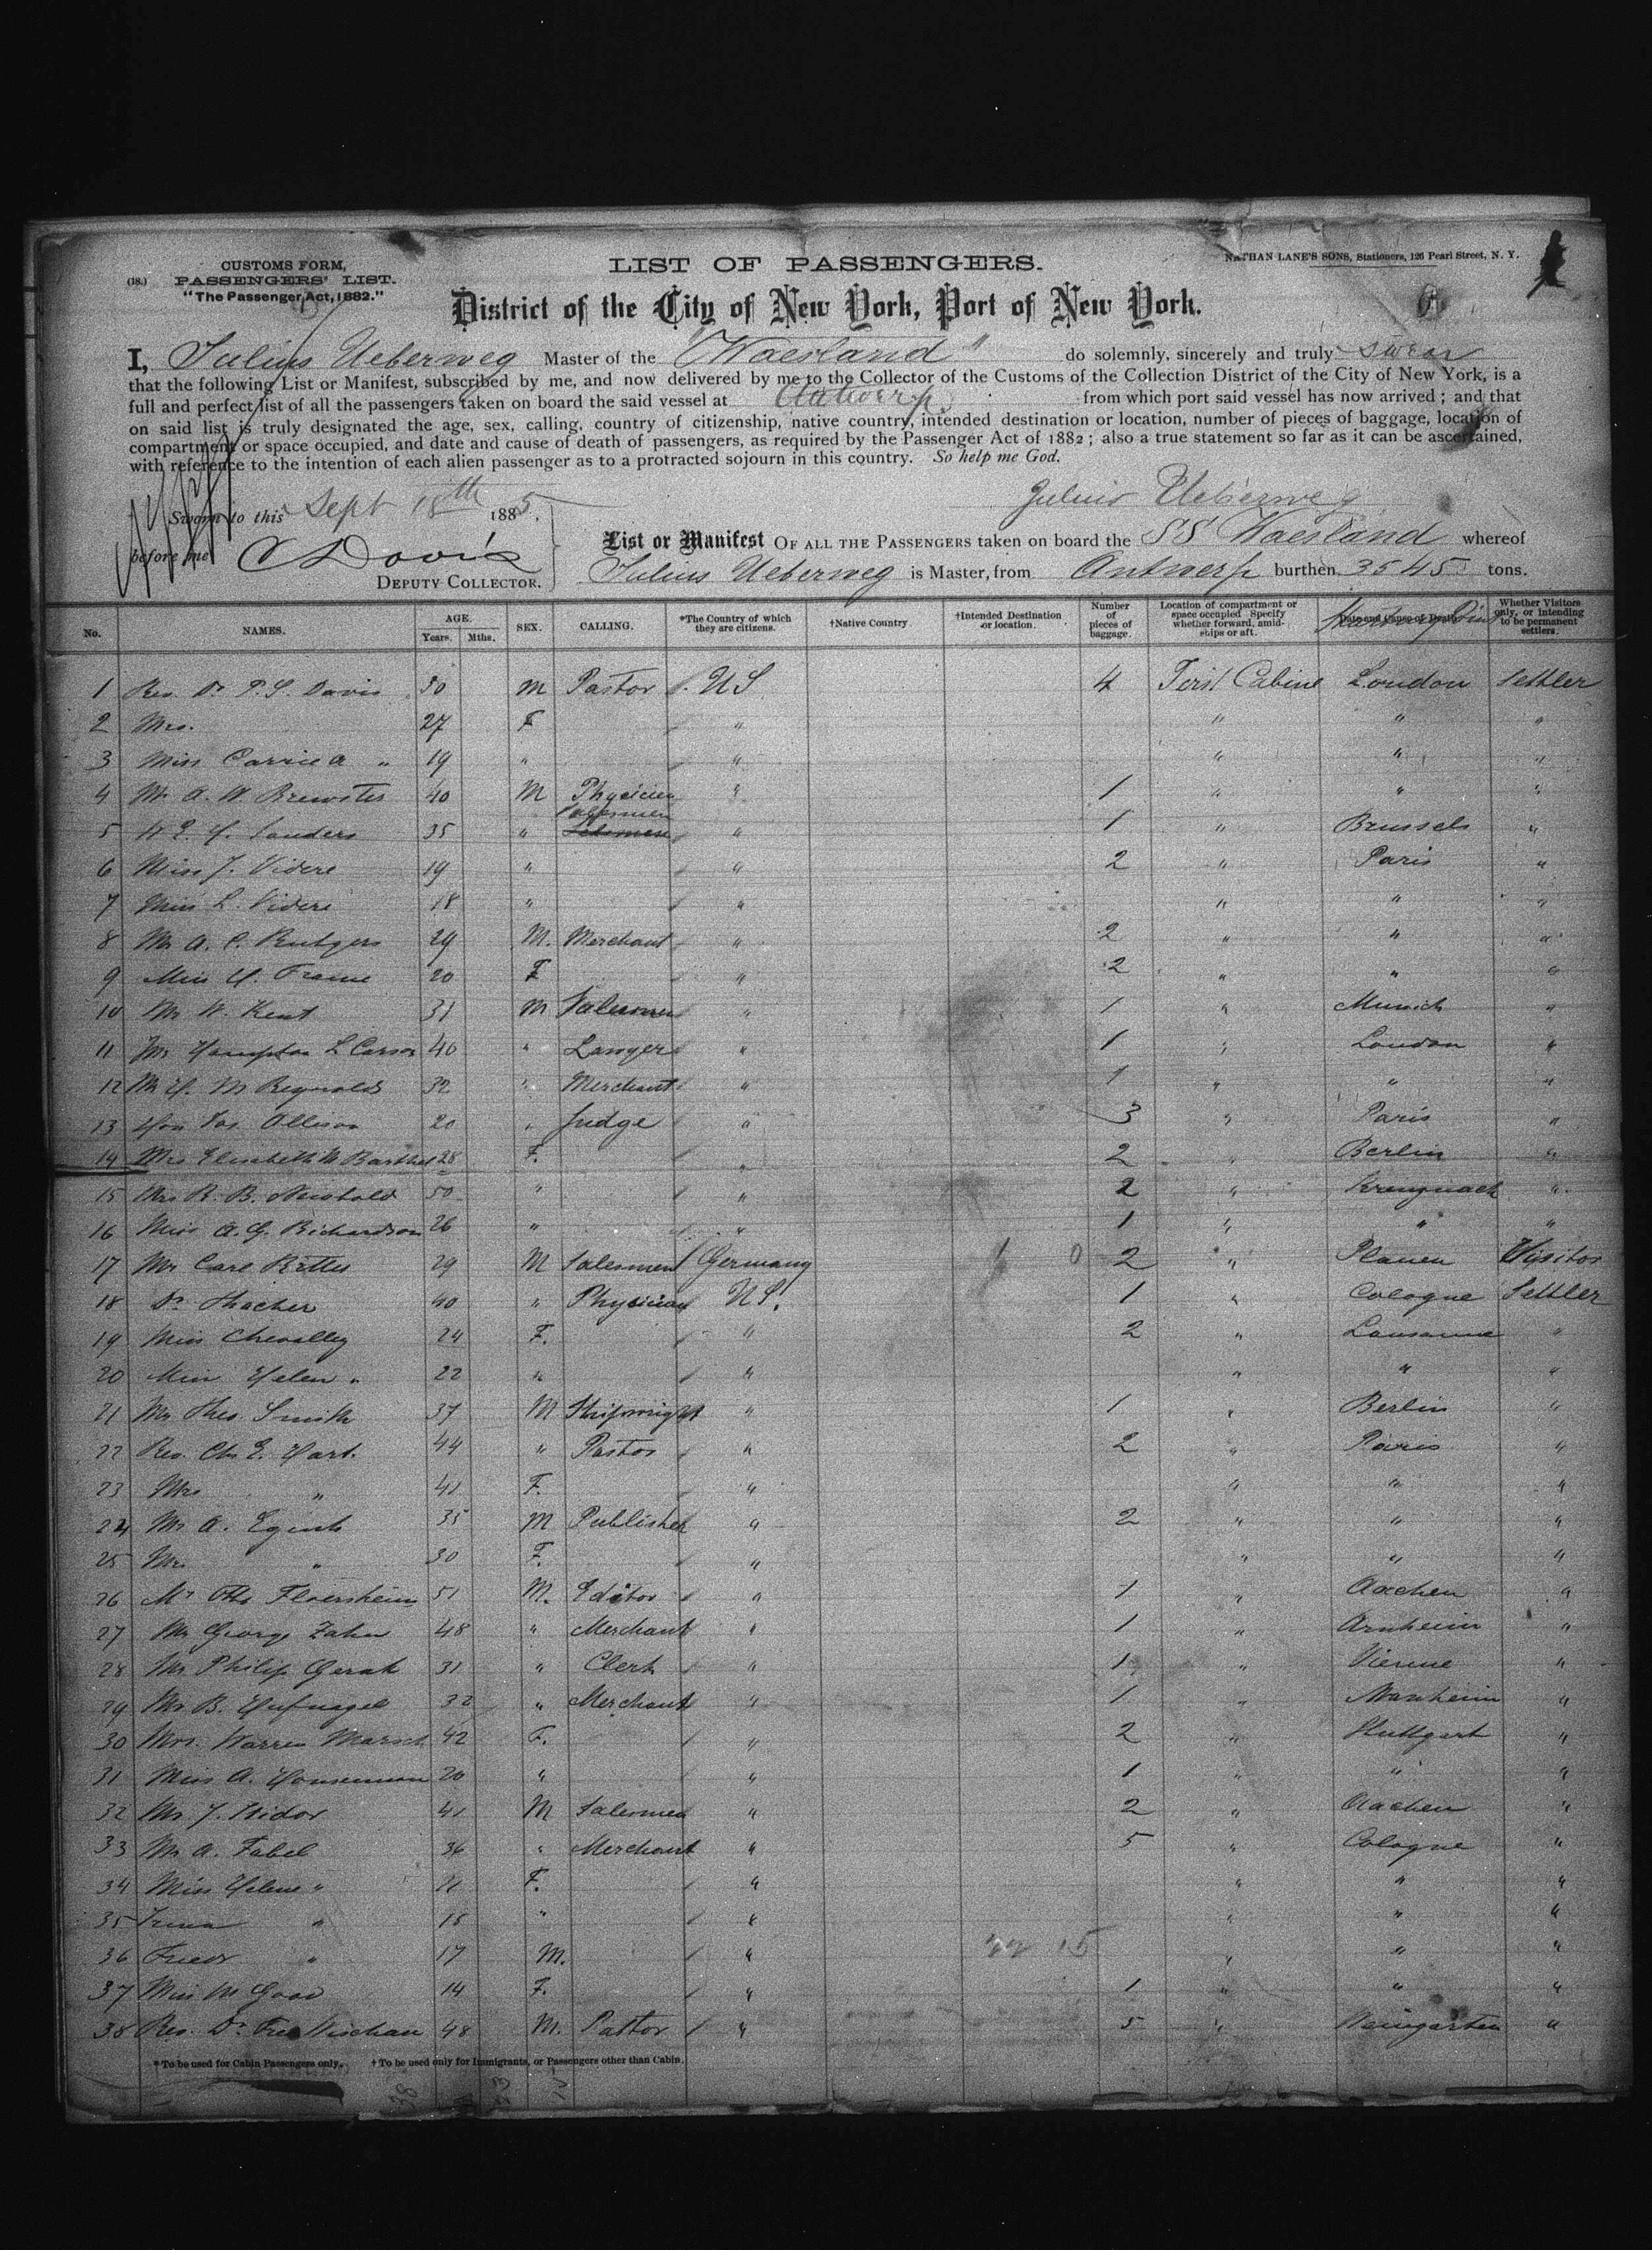 (18.)
CUSTOMS FORM,
PASSENGERS' LIST.
"The Passenger Act, 1882."
LIST OF PASSENGERS.
NATHAN LANE'S SONS, Stationers, 126 Pearl Street, N. Y.
District of the City of New York, Port of New York.
I, Julius Ueberweg Master of the "Waesland" do solemnly, sincerely and truly swear
that the following List or Manifest, subscribed by me, and now delivered by me to the Collector of the Customs of the Collection District of the City of New York, is a
full and perfect list of all the passengers taken on board the said vessel at Antwerp from which port said vessel has now arrived ; and that
on said list is truly designated the age, sex, calling, country of citizenship, native country, intended destination or location, number of pieces of baggage, location of
compartment or space occupied, and date and cause of death of passengers, as required by the Passenger Act of 1882 ; also a true statement so far as it can be ascertained,
with reference to the intention of each alien passenger as to a protracted sojourn in this country. So help me God.
Julius Ueberweg
Sworn to this Sept 18th 1885.
before me Davis
DEPUTY COLLECTOR.
List or Manifest OF ALL THE PASSENGERS taken on board the SS Waesland whereof
Julius Ueberweg is Master, from Antwerp burthen 3545 tons.
No. NAMES. AGE. Years. Mths. SEX. CALLING. *The Country of which they are citizens. †Native Country †Intended Destination or location. Number of pieces of baggage. Location of compartment or space occupied. Specify whether forward, amidships or aft. Date and Cause of Death. Whether Visitors only, or intending to be permanent settlers.
1 Rev. Dr P. S. Davis 50 M Pastor US 4 First Cabine London Settler
2 Mrs. 27 F " " " "
3 Miss Carrie A " 19 " " " " "
4 Mr A. W. Brewster 40 M Physicien " 1 " " "
5 Sanders 35 " Salesmen " 1 " Brussels "
6 Miss J. Videre 19 " " 2 " Paris "
7 Miss L. Videre 18 " " " " "
8 Mr A. C. Rutgers 29 M. Merchant " 2 " " "
9 Miss H. Frame 20 F " 2 " " "
10 Mr W. Kent 31 M Salesmen " 1 " Munich "
11 Mr Hampton L Carson 40 " Lawyer " 1 " London "
12 Mr H. M Reynolds 32 " Merchant " 1 " " "
13 Hon Jos. Allison 20 " Judge " 3 " Paris "
14 Mrs Elisabeth W Barthel 28 F. " 2 " Berlin "
15 Mrs R. B. Newbold 50 " " 2 " Kreuznach "
16 Miss A. G. Richardson 26 " " 1 " " "
17 Mr Carl Ritter 29 M Salesmen Germany 2 " Plauen Visitor
18 Dr Thacher 40 " Physician US. 1 " Cologne Settler
19 Miss Chevalley 24 F. " 2 " Lausanne "
20 Miss Helen " 22 " " " " "
21 Mr Theo. Smith 37 M Shipwright " 1 " Berlin "
22 Rev. Ch. E. Hart. 44 " Pastor " 2 " Paris "
23 Mrs " 41 F. " " " "
24 Mr A. 35 M Publisher " 2 " " "
25 Mrs " 30 F. " " " "
26 Mr Otto Floersheim 51 M. Editor " 1 " Aachen "
27 Mr George Zahn 48 " Merchant " 1 " Arnheim "
28 Mr Philip Gerak 31 " Clerk " 1 " Vienne "
29 Mr B. Hufnagel 32 " Merchant " 1 " Manheim "
30 Mrs. Warren Marsch 42 F. " 2 " Stuttgart "
31 Miss A. Houseman 20 " " 1 " " "
32 Mr. J. Isidor 41 M Salesmen " 2 " Aachen "
33 Mr A. Fabel 36 " Merchant " 5 " Cologne "
34 Miss Helene " F. " " " "
35 Irma " 15 " " " " "
36 Friedr " 17 M. " " " "
37 Miss M Good 14 F. " 1 " " "
38 Rev. Dr Wischan 48 M. Pastor " 5 " Weingarten "
* To be used for Cabin Passengers only. † To be used only for Immigrants, or Passengers other than Cabin.